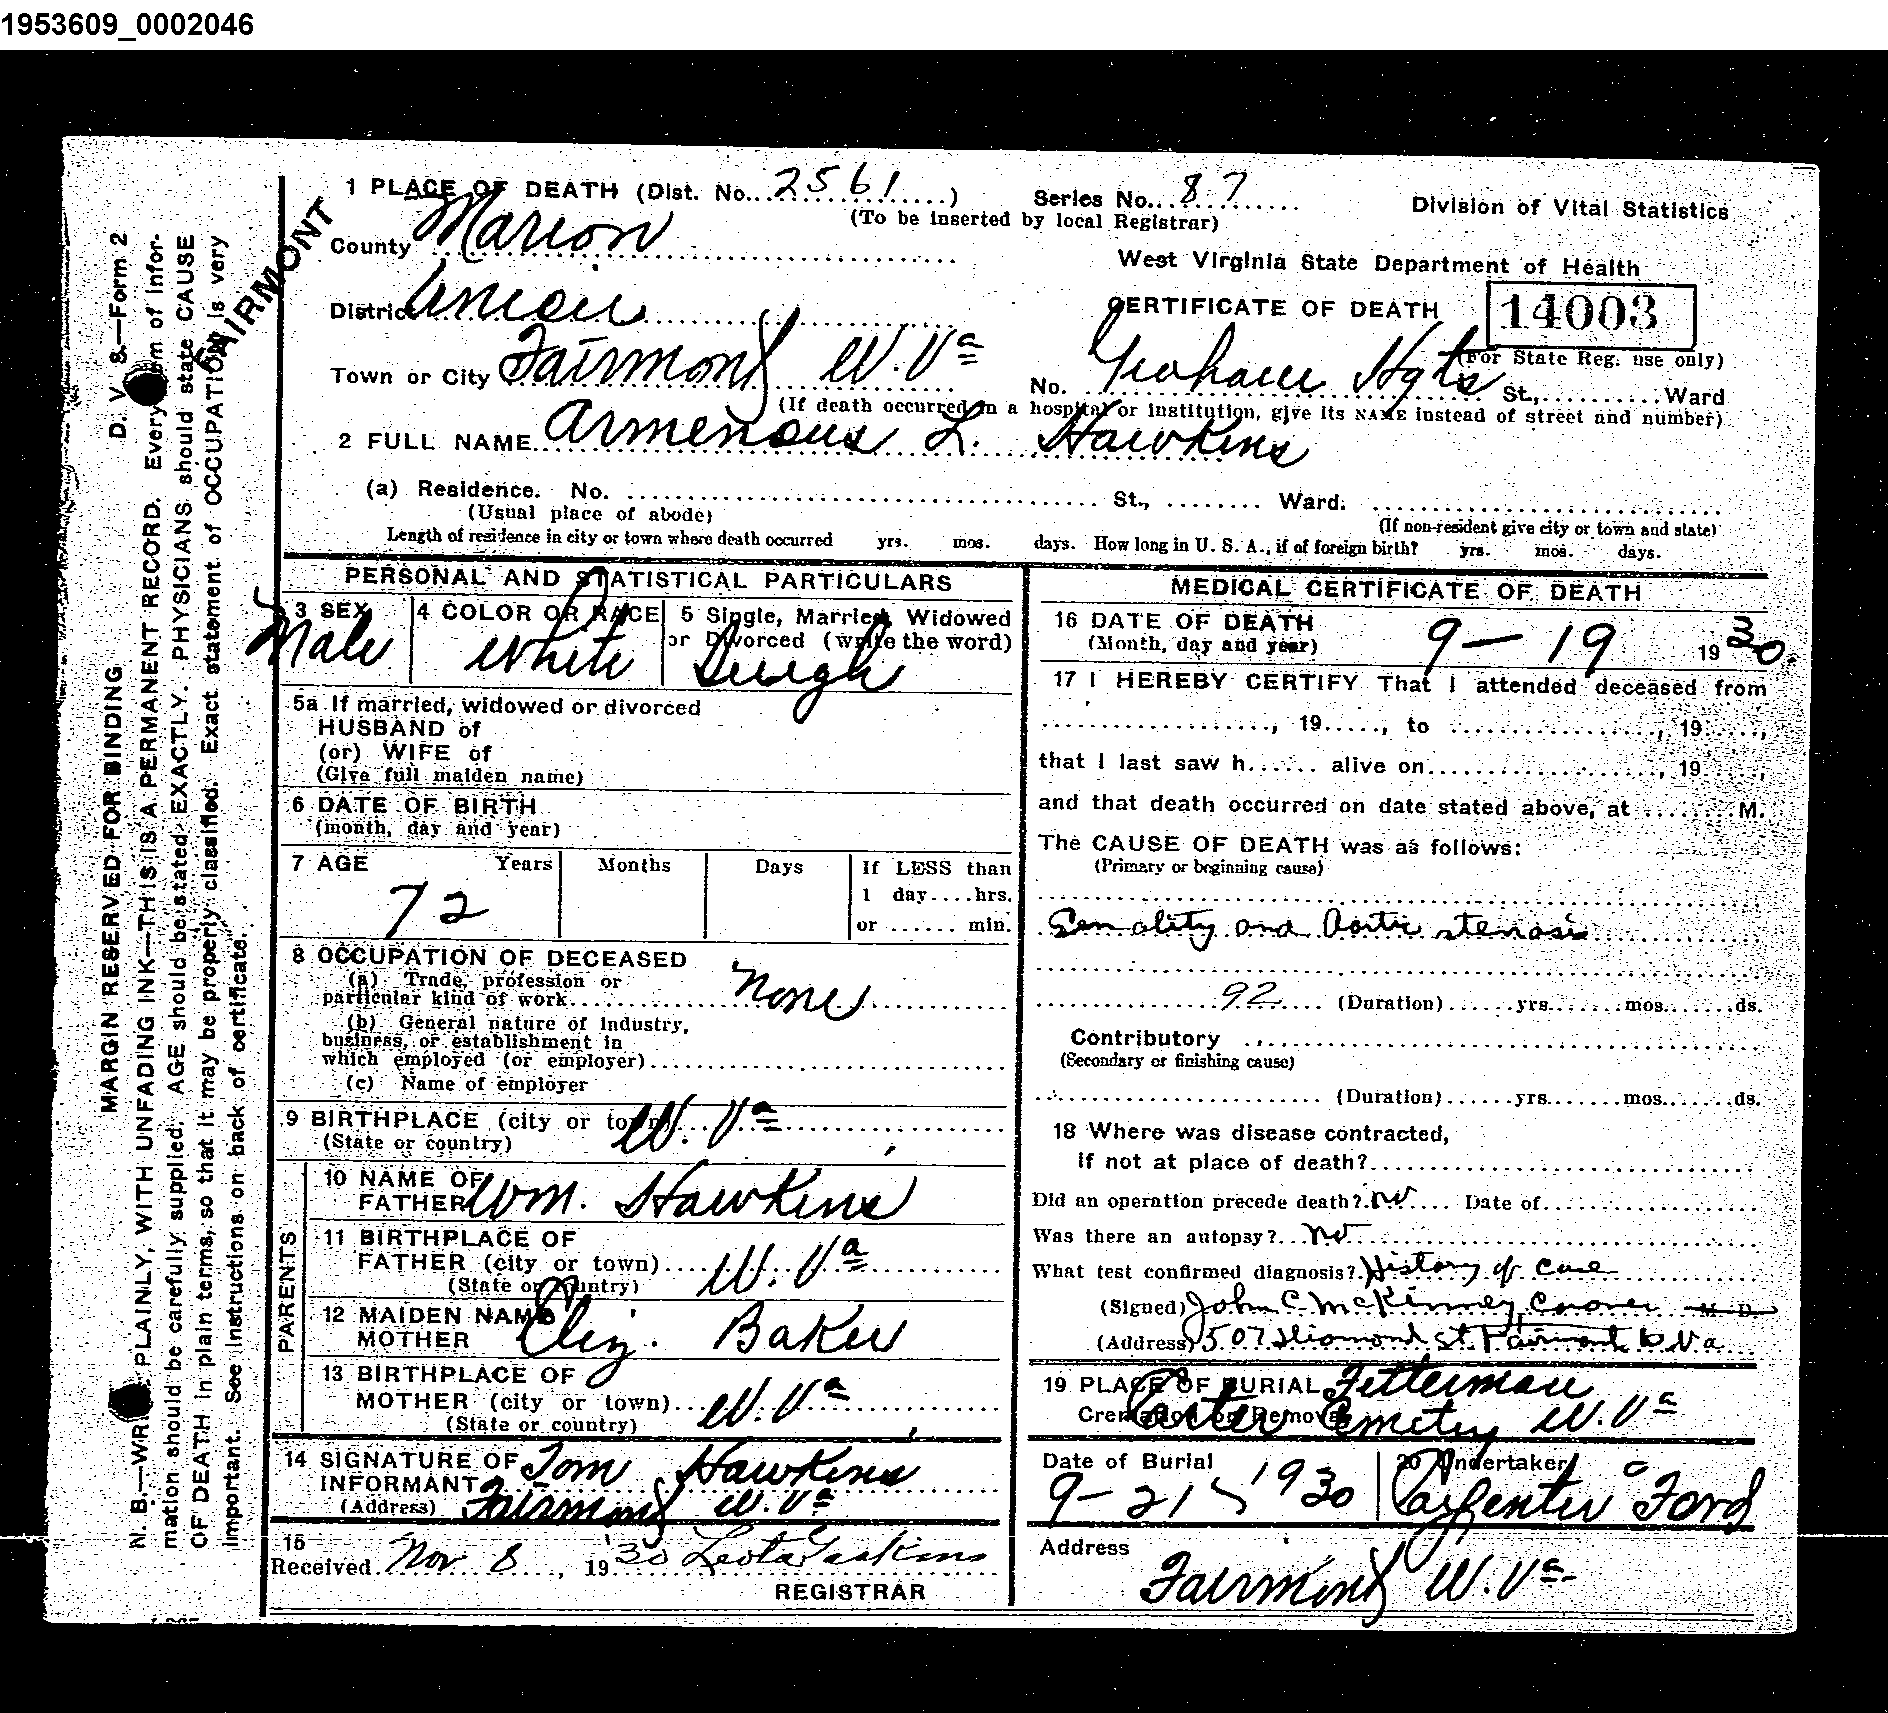 1953609_0002046
1 PLACE OF DEATH (Dist. No. 2561) Series No. 87
(To be inserted by local Registrar)
Division of Vital Statistics
County Marion
West Virginia State Department of Health
District Union
CERTIFICATE OF DEATH 14003
(For State Reg. use only)
Town or City Fairmont W. Va No. Graham Hgts St., Ward
(If death occurred in a hospital or institution, give its NAME instead of street and number)
2 FULL NAME Armenous L. Hawkins
(a) Residence. No. St., Ward.
(Usual place of abode) (If non-resident give city or town and state)
Length of residence in city or town where death occurred yrs. mos. days. How long in U. S. A., if of foreign birth? yrs. mos. days.
PERSONAL AND STATISTICAL PARTICULARS
3 SEX Male
4 COLOR OR RACE White
5 Single, Married, Widowed
or Divorced (write the word)
Single
5a If married, widowed or divorced
HUSBAND of
(or) WIFE of
(Give full maiden name)
6 DATE OF BIRTH
(month, day and year)
7 AGE Years Months Days If LESS than
1 day....hrs.
72 or ...... min.
8 OCCUPATION OF DECEASED
(a) Trade, profession or
particular kind of work None
(b) General nature of Industry,
business, or establishment in
which employed (or employer)
(c) Name of employer
9 BIRTHPLACE (city or town) W. Va
(State or country)
PARENTS
10 NAME OF
FATHER Wm. Hawkins
11 BIRTHPLACE OF
FATHER (city or town) W. Va
(State or country)
12 MAIDEN NAME
MOTHER Eliz. Baker
13 BIRTHPLACE OF
MOTHER (city or town) W. Va
(State or country)
14 SIGNATURE OF Tom Hawkins
INFORMANT
(Address) Fairmont W. Va
15
Received Nov 8, 1930 Leota Gaskins
REGISTRAR
MEDICAL CERTIFICATE OF DEATH
16 DATE OF DEATH
(Month, day and year) 9 - 19 1930.
17 I HEREBY CERTIFY That I attended deceased from
, 19....., to , 19.....,
that I last saw h...... alive on , 19.....,
and that death occurred on date stated above, at M.
The CAUSE OF DEATH was as follows:
(Primary or beginning cause)
Senality and Aortic stenosis
92 (Duration) yrs. mos. ds.
Contributory
(Secondary or finishing cause)
(Duration) yrs. mos. ds.
18 Where was disease contracted,
if not at place of death?
Did an operation precede death? no Date of
Was there an autopsy? no
What test confirmed diagnosis? History of case
(Signed) John C. McKinney, Coroner M. D.
(Address) 507 Diamond St Fairmont W Va
19 PLACE OF BURIAL Fetterman
Cremation or Removal Cemetery W. Va
Date of Burial 9-21 1930
20 Undertaker Carpenter & Ford
Address
Fairmont W. Va
FAIRMONT
D. V. S.—Form 2
MARGIN RESERVED FOR BINDING
N. B.—WRITE PLAINLY, WITH UNFADING INK—THIS IS A PERMANENT RECORD. Every item of infor-
mation should be carefully supplied. AGE should be stated EXACTLY. PHYSICIANS should state CAUSE
OF DEATH in plain terms, so that it may be properly classified. Exact statement of OCCUPATION is very
important. See instructions on back of certificate.